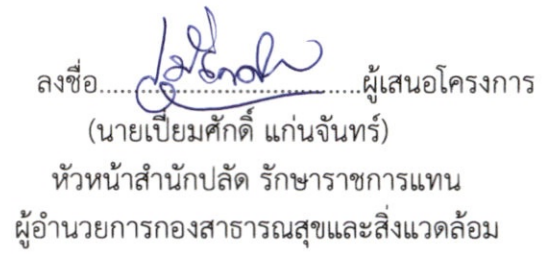 ลงชื่อ..................................ผู้เสนอโครงการ
(นายเปี่ยมศักดิ์ แก่นจันทร์)
หัวหน้าสำนักปลัด รักษาราชการแทน
ผู้อำนวยการกองสาธารณสุขและสิ่งแวดล้อม